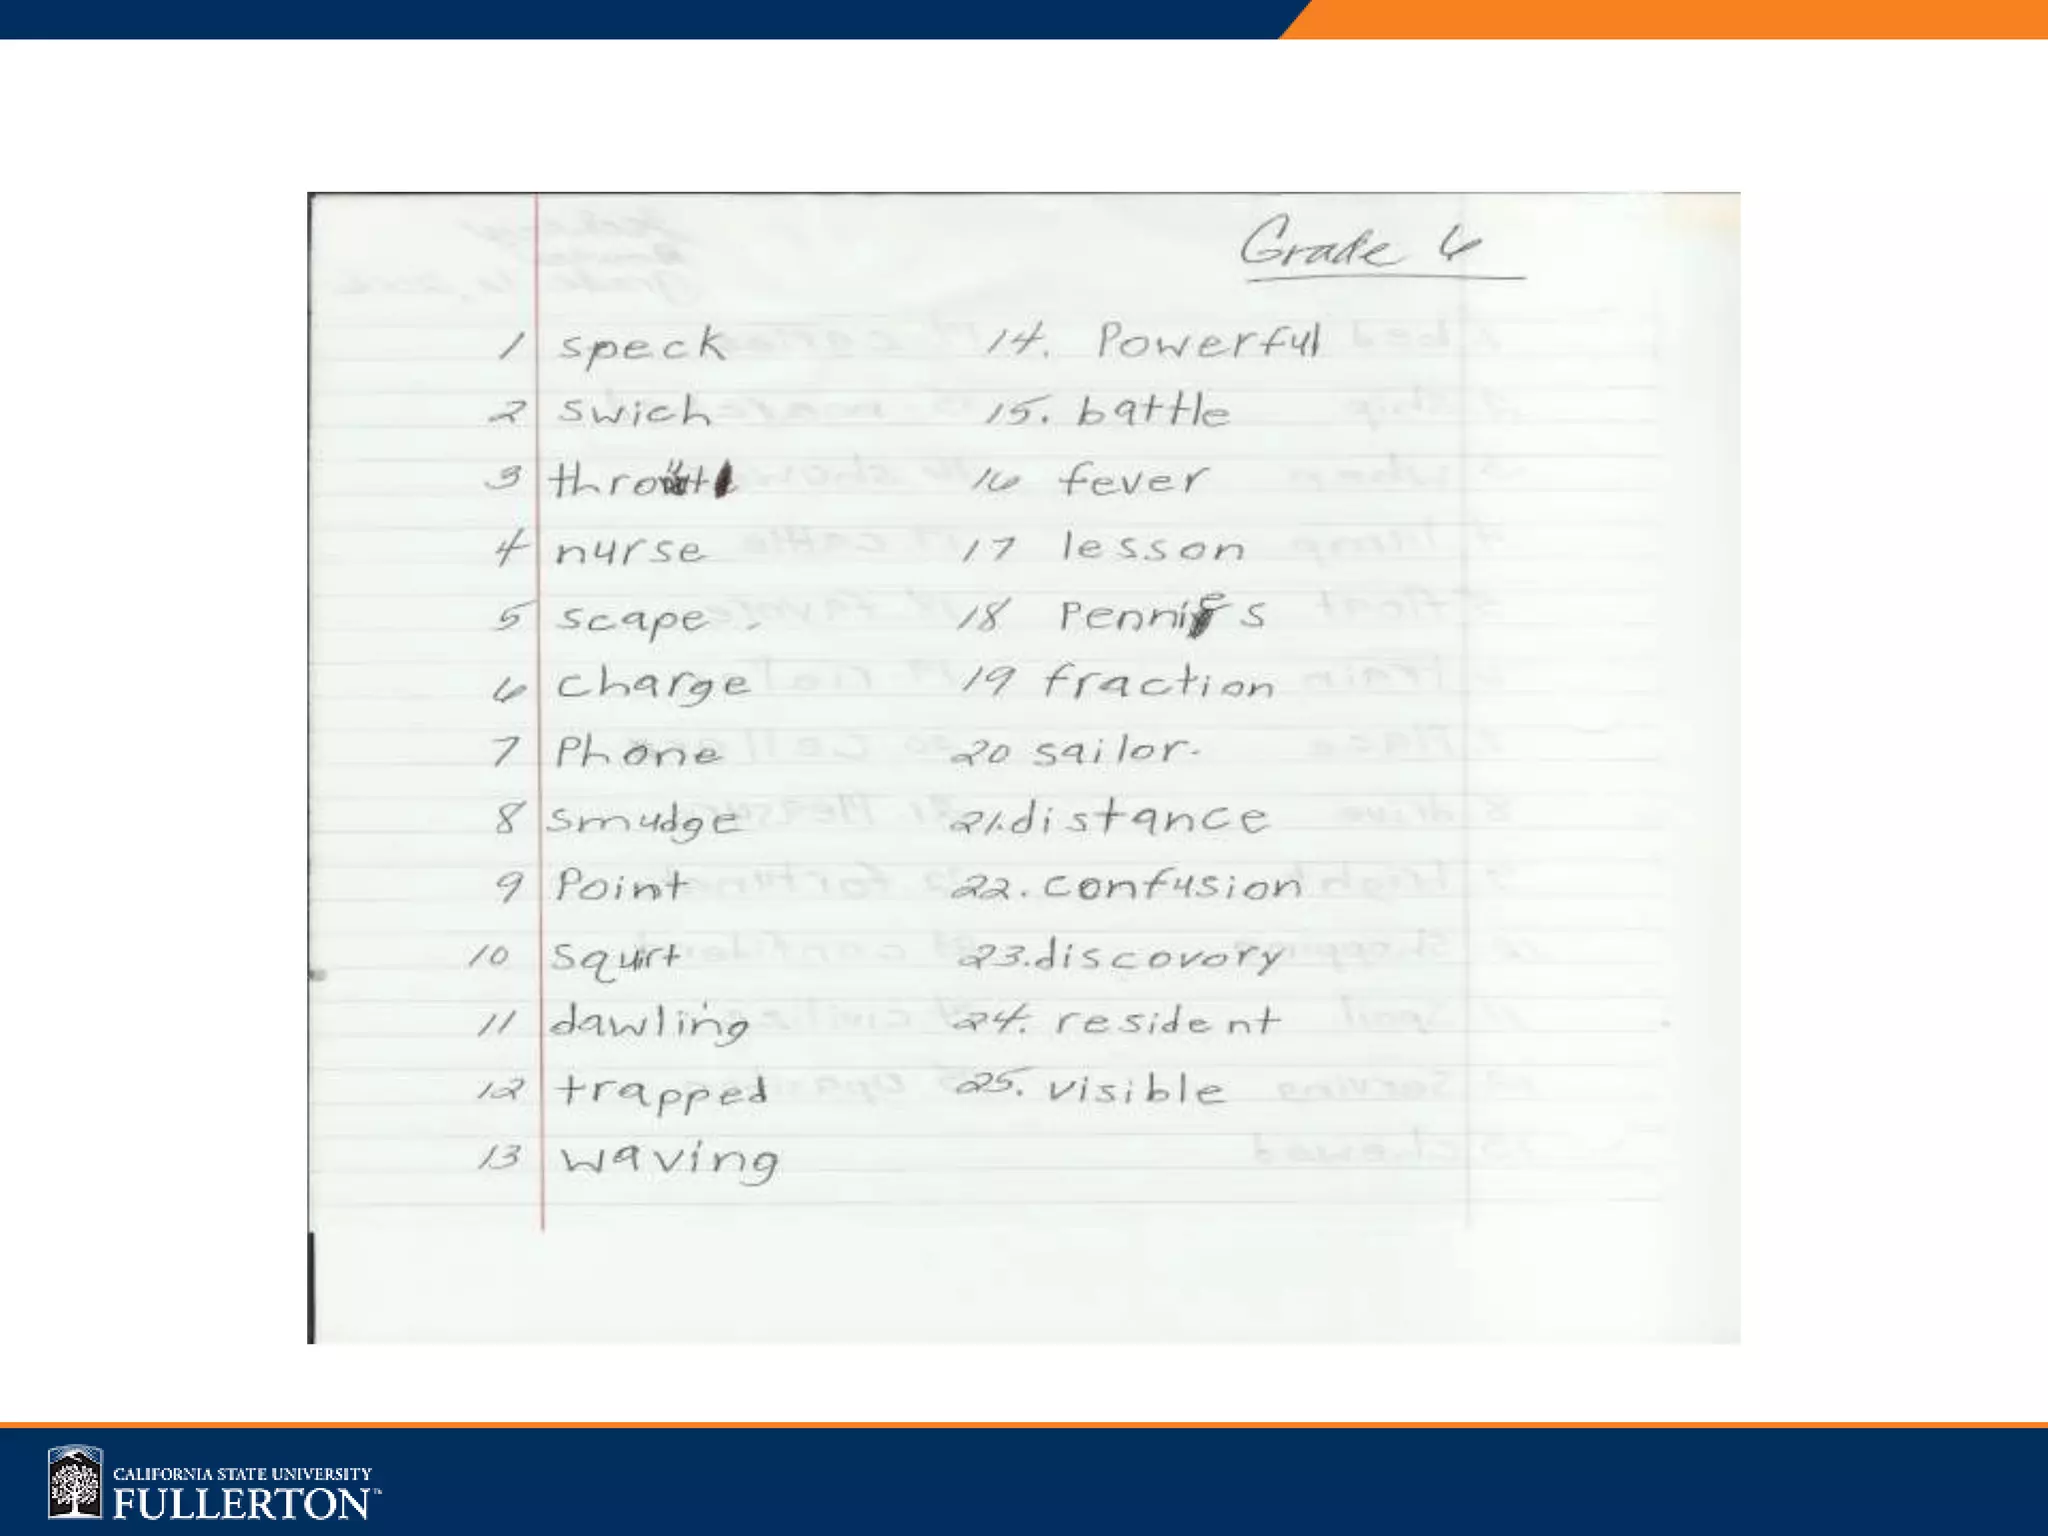 Grade 6
1 speck
2 swich
3
4 nurse
5 scape
6 charge
7 Phone
8 smudge
9 Point
10 squirt
11 dawling
12 trapped
13 waving
14. Powerful
15. battle
16 fever
17 lesson
18 Pennies
19 fraction
20 sailor.
21. distance
22. confusion
23. discovory
24. resident
25. visible
CALIFORNIA STATE UNIVERSITY
FULLERTON™